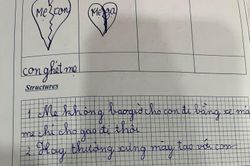 Mẹ con
Mẹ gà
con ghét mẹ
Structures
1. Mẹ không bao giờ cho con đi bằng xe mà
mẹ chỉ cho gao đi thôi
2. Hay thường xưng mày tao với con